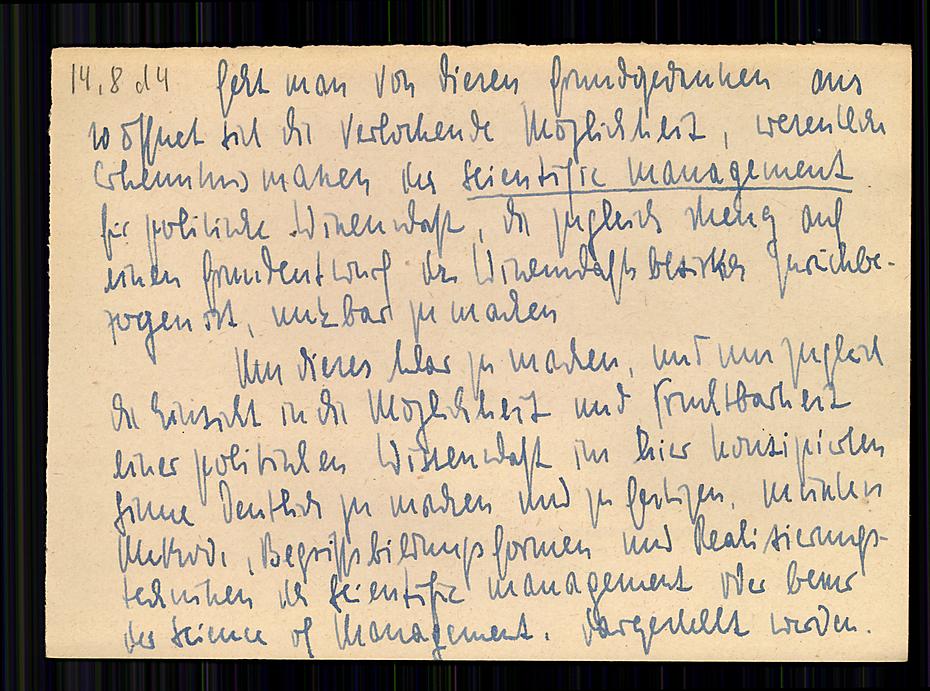 14,8 d14 Geht man von diesen Grundgedanken aus
so öffnet sich die verlockende Möglichkeit, wesentliche
Erkenntnis machen des scientific management
für politische Wissenschaft, die zugleich streng auf
einen Grundentwurf des Wissenschaftsbezirkes zurückbe-
zogen ist, nutzbar zu machen
Um dieses klar zu machen, und um zugleich
die Einsicht in die Möglichkeit und Fruchtbarkeit
einer politischen Wissenschaft im hier konzipierten
Sinne deutlich zu machen und zu festigen, müssen
Methode, Begriffsbildungsformen und Realisierungs-
techniken des scientific management oder besser
der Science of Management. dargestellt werden.